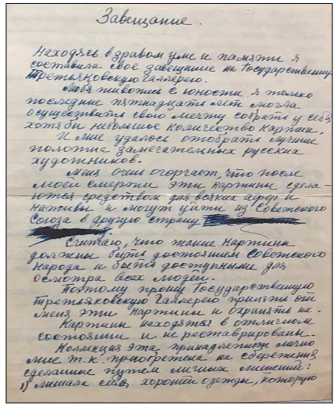 Завещание.
Находясь в здравом уме и памяти я
составила свое завещание на Государственную
Третьяковскую Галлерею.
Любя живопись с юности я только
последние пятнадцать лет могла
осуществить свою мечту собрать у себя
хотя бы небольшое количество картин.
И мне удалось отобрать лучшие
полотна замечательных русских
художников.
Меня очень огорчает, что после
моей смерти эти картины сдела-
ются средством для всяких афер и
наживы и могут уйти из Советского
Союза в другую страну
Считаю, что такие картины
должны быть достоянием Советского
народа и быть доступными для
осмотра всех людей.
Поэтому прошу Государственную
Третьяковскую Галлерею принять от
меня эти картины и охранять их.
Картины находятся в отличном
состоянии и не реставрированы.
Коллекция эта принадлежит лично
мне т.к. приобретена на сбережения
сделанные путем личных лишений:
1) лишала себя хорошей одежды, которую